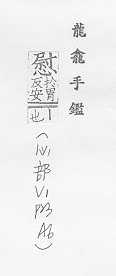 龍龕手鑑
慰
於胃丨
反安也
(心部 V1 A6)